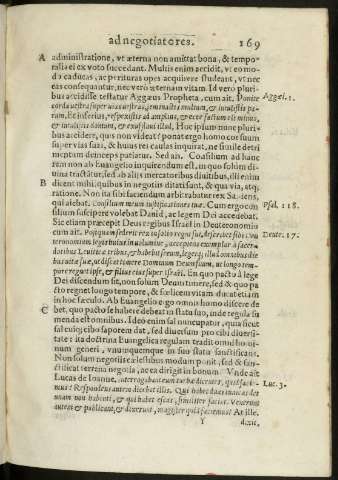 ad negotiatores. 169
A administratione, vt æterna non amittat bona, & tempo-
ralia ei ex voto succedant. Multis enim accidit, vt eo mo-
do caducas, ac perituras opes acquirere studeant, vt nec
eas consequantur, nec vero æternam vitam. Id vero pluri-
bus accidisse testatur Aggæus Propheta, cum ait. Ponite Aggæi. 1.
corda vestra super vias vestras, seminastis multum, & intulistis pa-
rum, &c inferius, respexistis ad amplius, & ecce factum est minus,
& intulistis domum, & exsufflaui illud. Hoc ipsum nunc pluri-
bus accidere, quis non videat? ponat ergo homo cor suum
super vias suas, & huius rei caulas inquirat, ne simile detri
mentum deinceps patiatur. Sed ais. Consilium ad hanc
rem non ab Euangelio inquirendum est, in quo solùm di-
uina tractátur, sed ab alijs mercatoribus diuitibus, illi enim
B dicent mihi: quibus in negotijs ditati sunt, & qua via, atq;
ratione. Non ita sibi faciendum arbitrabatur rex Sapiens,
qui aiebat. consilium meum iustificationes tuæ. Cum ergo con Psal. 118.
silium suscipere volebat Dauid, ac legem Dei accedebat.
Sic etiam præcepit Deus regibus Israël in Deuteronomio
cum ait. Postquam sederit rex in solio regni sui, describet sibi Deu Deute. 17.
teronomium legis huius in volumine, accipiens exemplar à sacer-
dotibus Leuiticæ tribus, & habebit secum, legetq; illud omnibus die
bus vitæ suæ, vt discat timere Dominum Deum suum, vt longo tem-
pore regnet ipse, & filius eius super Israël. En quo pacto à lege
Dei discendum sit, non solum Deum timere, sed & quo pa
cto regnet longo tempore, & fœlicem vitam ducat etiam
in hoc sæculo. Ab Euangelio ergo omni homo discere de
C bet, quo pacto se habere debeat in statu suo, inde regula su
menda est omnibus. Ideò enim sal nuncupatur, quia sicut
sal cuiq; cibo saporem dat, sed diuersum pro cibi diuersi-
tate: ita doctrina Euangelica regulam tradit omni homi-
num generi, vnumquemque in suo statu sanctificans.
Non solum negotijs cælestibus modum ponit, sed & san-
ctificat terrena negotia, ac ea dirigit in bonum. Vnde ait
Lucas de Ioanne, interrogabant eum turbæ dicentes, quid facie- Luc. 3.
mus? Respondens autem dicebat illis. Qui habet duas tunicas det
vnam non habenti, & qui habet escas, similiter faciat. Venerunt
autem & publicani, & dixerunt, magister quid faciemus? At ille.
Y dixit,